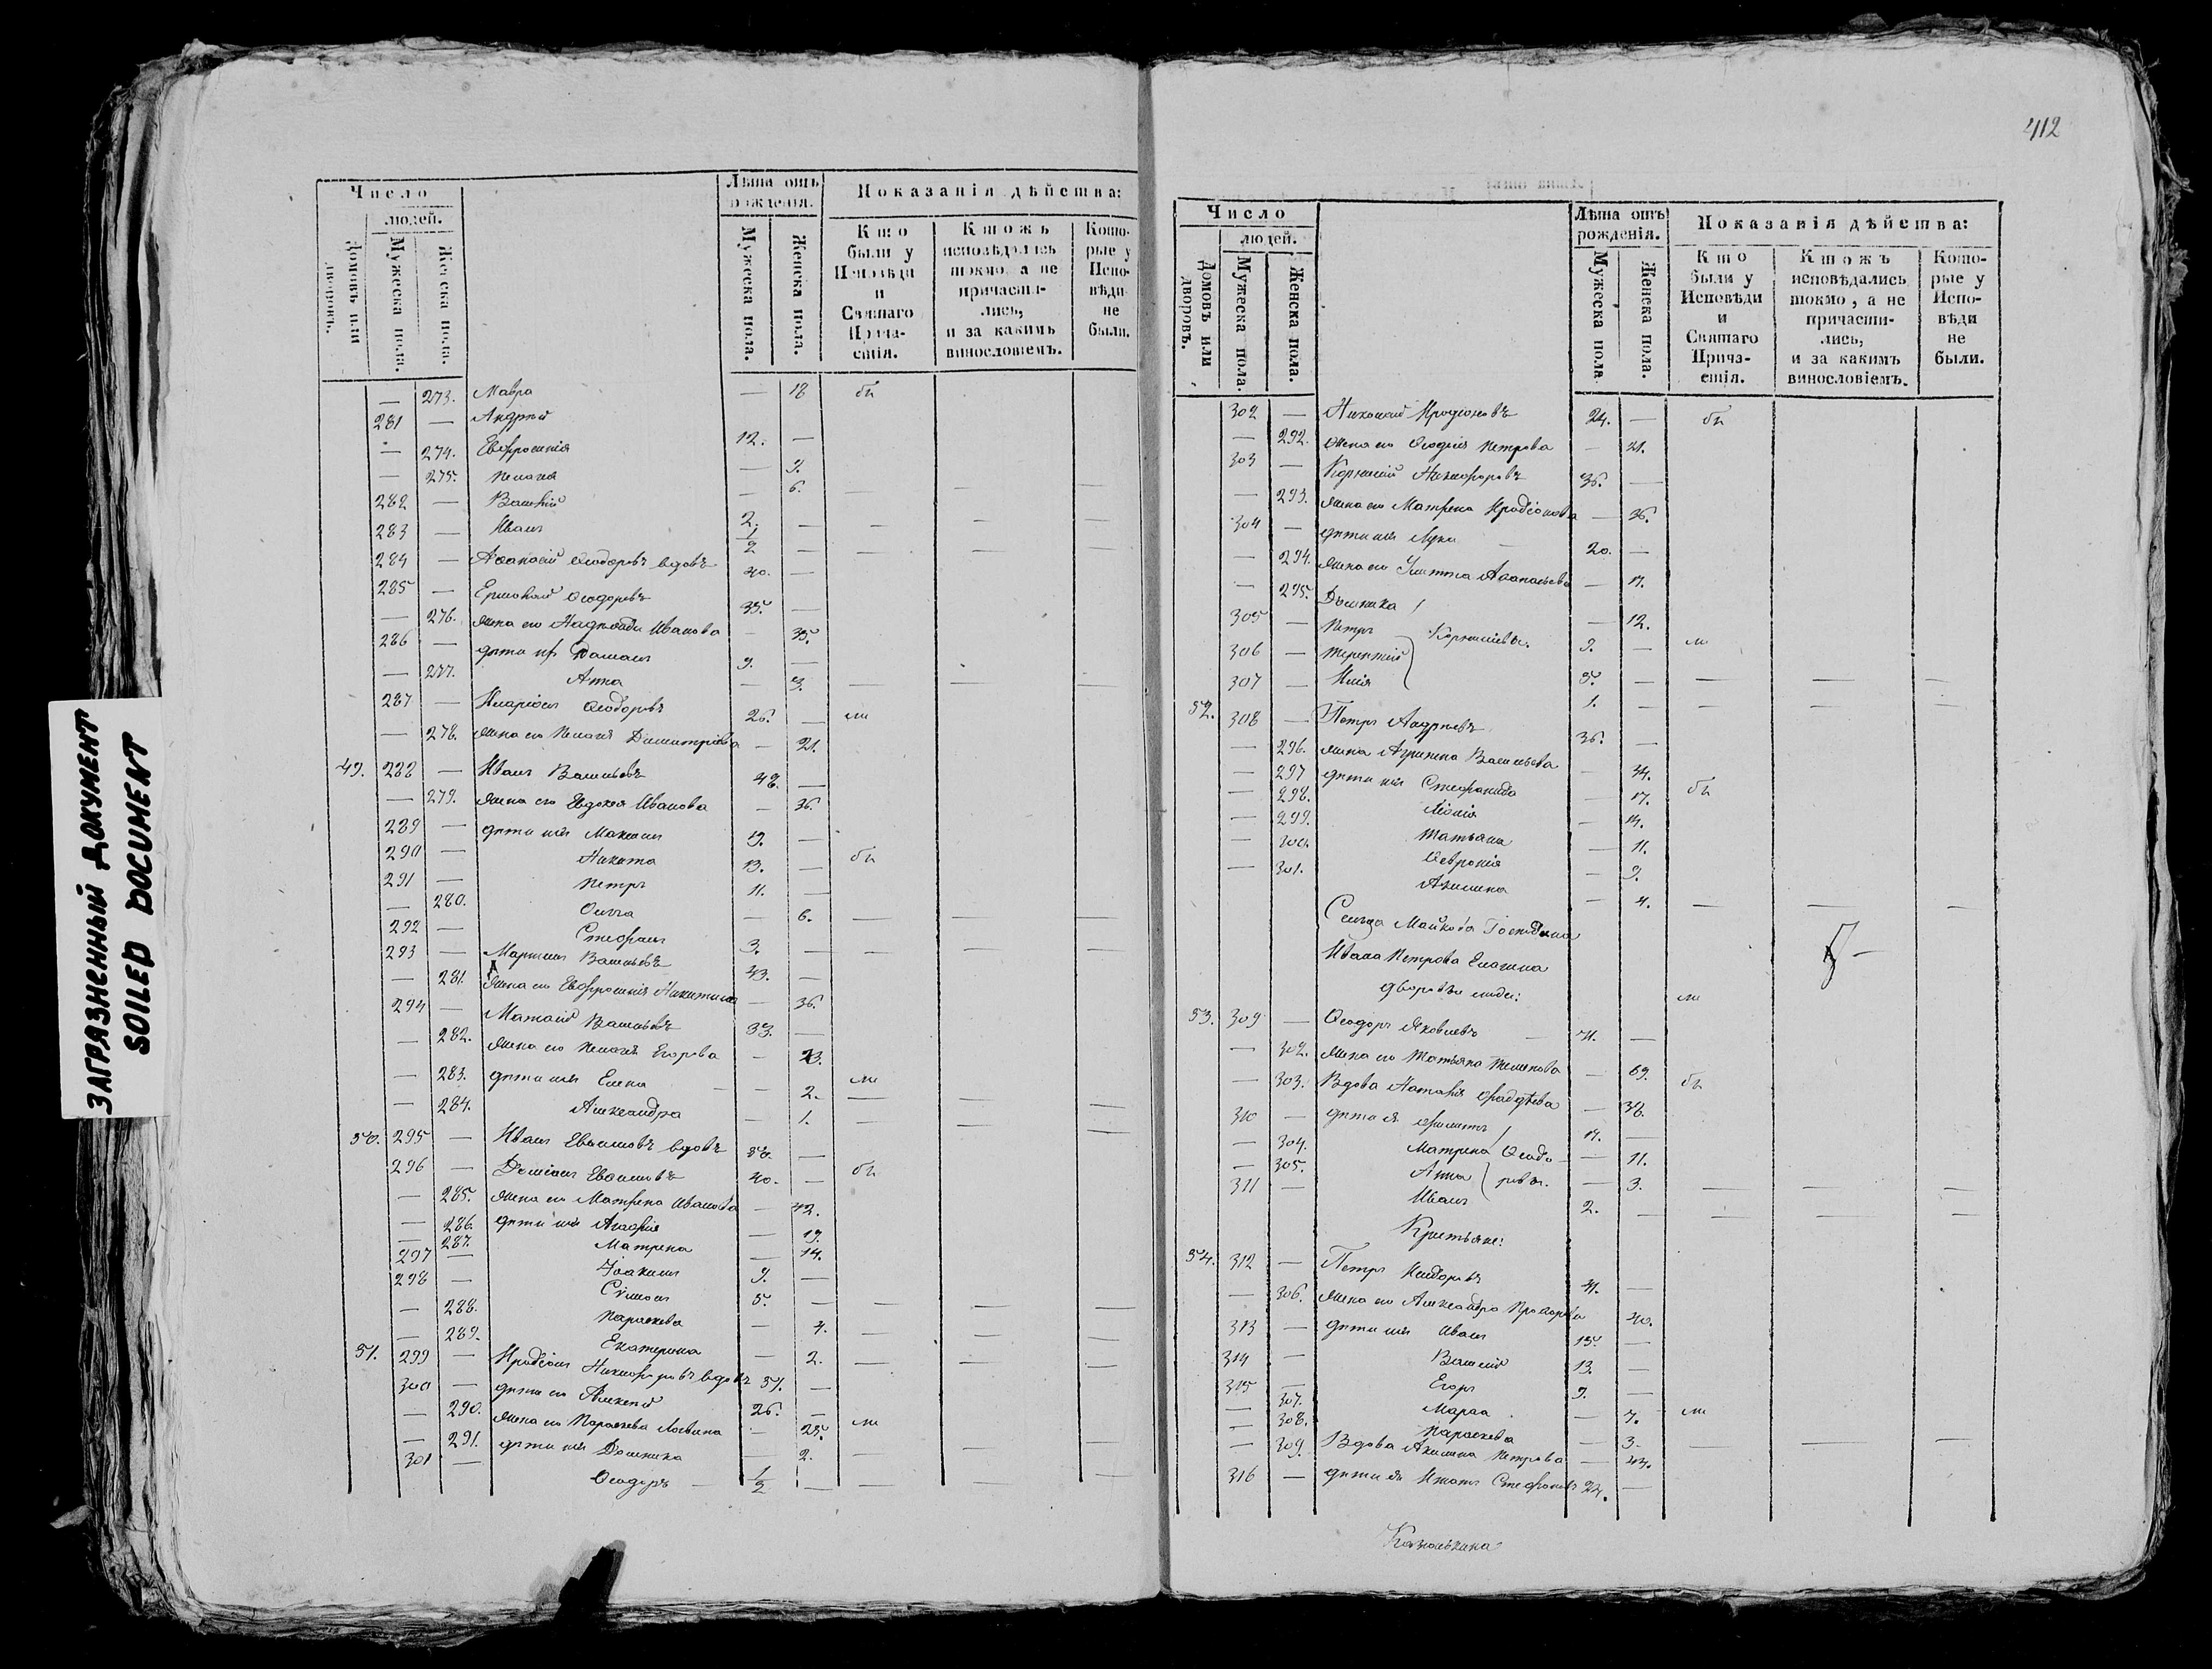 412
ЗАГРЯЗНЕННЫЙ ДОКУМЕНТ
SOILED DOCUMENT
Число
людей.
Домовъ или дворовъ.
Мужеска пола.
Женска пола.
Лѣта отъ рожденія.
Мужеска пола.
Женска пола.
Показанія дѣйства:
Кто были у Исповѣди и Святаго Причастія.
Ктожъ исповѣдались токмо, а не причастились, и за какимъ винословіемъ.
Которые у Исповѣди не были.
— 273. Мавра — 18
281 — Андрей 12. —
— 274. Евфросинія — 9.
— 275. Пелагея — 6. — — —
282 — Василій 2. — — — —
283 — Иванъ 1/2 — — — —
284 — Аѳанасій Ѳеодоровъ вдовъ 40. —
285 — Ермолай Ѳеодоровъ 35. —
— 276. жена его Иванова — 35.
286 — дѣти их 9. —
— 277. Анна — 3. — — —
287 — Иларіонъ Ѳеодоровъ 26. —
— 278. жена его Пелагея Димитріева — 21.
49. 288 — Иванъ Васильевъ 48. —
— 279. жена его Евдокея Иванова — 36.
289 — дѣти ихъ Максимъ 19. —
290 — Никита 13. —
291 — Петръ 11. —
— 280. Ольга — 6. — — —
292 — Стефанъ 3. — — — —
293 — Мартинъ Васильевъ 43. —
— 281. жена его Евфросинія Никитина — 36.
294 — Матвѣй Васильевъ 33. —
— 282. жена его Пелагея Егорова — 23.
— 283. дѣти ихъ Елена — 2. — — —
— 284. Александра — 1. — — —
50. 295 — Иванъ Евсимовъ вдовъ —
296 — Демьянъ Евсимовъ 40. —
— 285. жена его Матрена Иванова — 42.
— 286. дѣти ихъ Агафія — 19.
— 287. Матрена — 14.
297 — Іоакимъ 9. —
298 — Сѵмеонъ 5. — — — —
— 288. Параскева — 4. — — —
— 289. Екатерина — 2. — — —
51. 299 — Иродіонъ Никифоровъ вдовъ 57. —
300 — дѣти его Алексей 26. —
— 290. жена его Параскева — 25.
— 291. дѣти ихъ Домника — 2. — — —
301 — Ѳеодоръ 1/2 — — — —
Число
людей.
Домовъ или дворовъ.
Мужеска пола.
Женска пола.
Лѣта отъ рожденія.
Мужеска пола
Женска пола.
Показанія дѣйства:
Кто были у Исповѣди и Святаго Причастія.
Ктожъ исповѣдались токмо, а не причастились, и за какимъ винословіемъ.
Которые у Исповѣди не были.
302 — Николай Иродіоновъ 24. —
— 292. жена его Ѳеодосія Петрова — 21.
303 — Корнилій Никифоровъ 36. —
— 293. жена его Матрена Иродіонова — 36.
304 — дѣти ихъ Лука 20. —
— 294. жена его Улитта Аѳанасьева — 17.
— 295. Домника — 12.
305 — Петръ Корниліевы. 9. —
306 — Терентій 5. — — — —
307 — Илія 1. — — — —
52. 308 — Петръ Андреевъ 36. —
— 296. жена Васильева — 34.
— 297 дѣти ихъ Стефанида — 17.
— 298. — 14.
— 299. Татьяна — 11.
— 300. Ѳевронія — 9.
— 301. Акилина — 4. — — —
Сельца Майкова Господина
Ивана Петрова Елагина
дворовые люди:
53. 309 — Ѳеодоръ Яковлевъ 71. —
— 302. жена его Татьяна — 69.
— 303. Вдова Наталія Ѳаддѣева — 38.
310 — дѣти ея 17. —
— 304. Матрена Ѳеодоровы. — 11.
— 305. Анна — 3. — — —
311 — Иванъ 2. — — — —
Крестьяне:
54. 312 — Петръ 41. —
— 306. жена его Александра — 40.
313 — дѣти ихъ Иванъ 15. —
314 — Василій 13. —
315 — Егоръ 9. —
— 307. Марѳа — 7.
— 308. Параскева — 3. — — —
— 309. Вдова Акилина Петрова — 43.
316 — дѣти ея 22. —